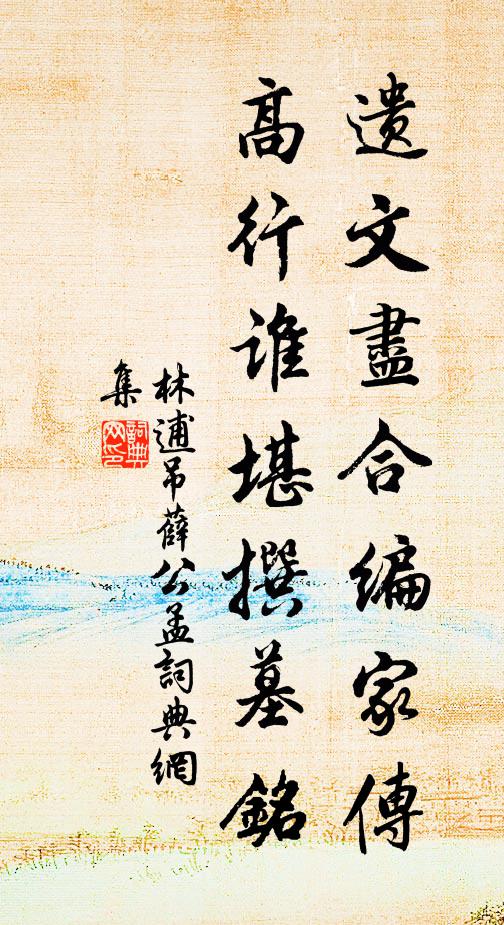 遺文盡合編家傳
高行誰堪撰墓銘
林逋吊薛公孟詞典網
集
詞典
网印